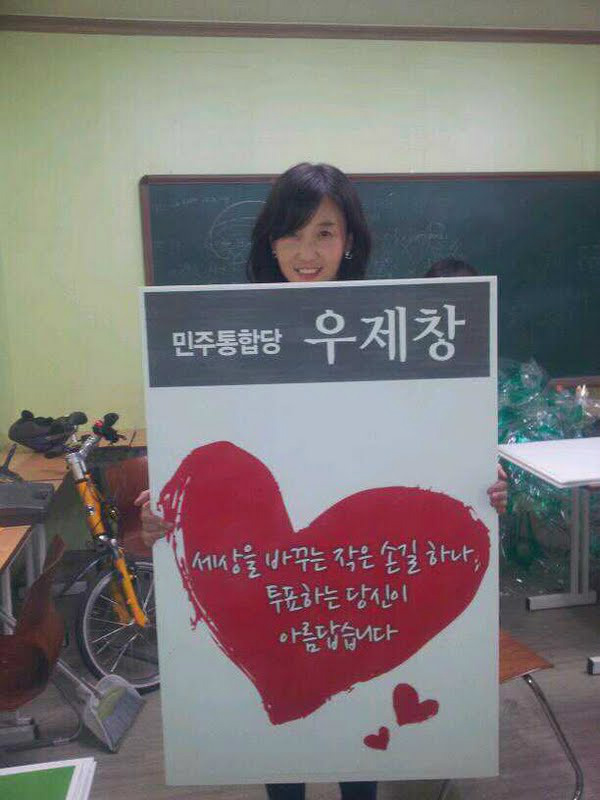 민주통합당 우제창
세상을 바꾸는 작은 손길 하나,
투표하는 당신이
아름답습니다